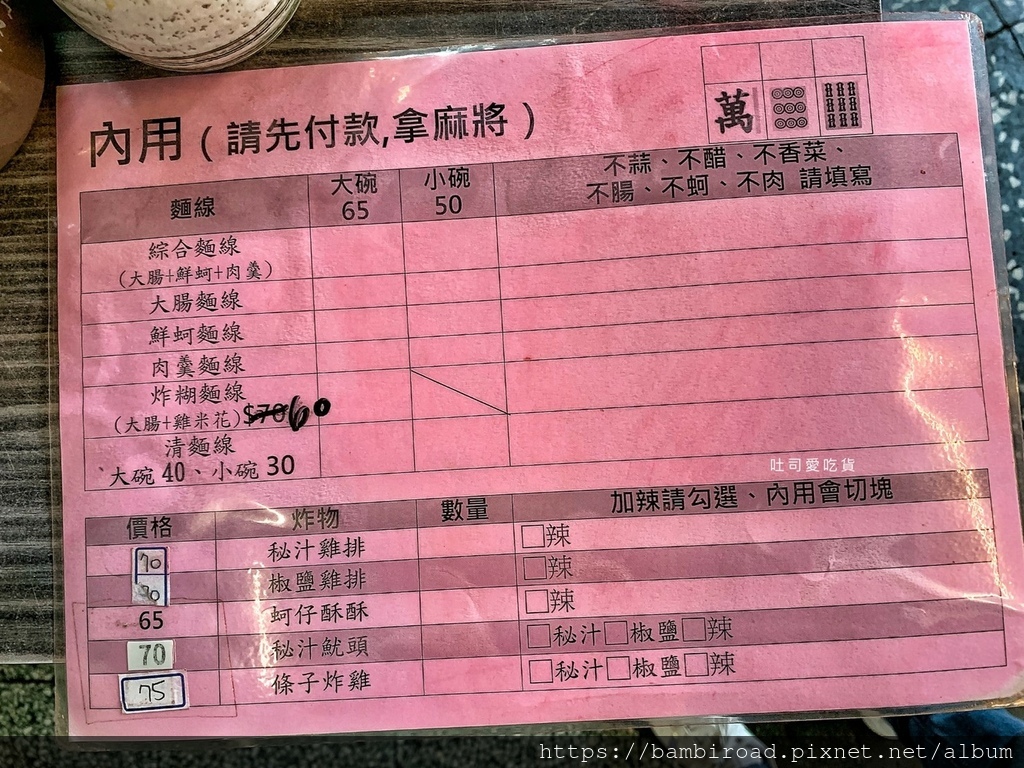 內用（請先付款,拿麻將）
萬
麵線 大碗 65 小碗 50 不蒜、不醋、不香菜、
不腸、不蚵、不肉 請填寫
綜合麵線
(大腸+鮮蚵+肉羹)
大腸麵線
鮮蚵麵線
肉羹麵線
炸糊麵線
(大腸+雞米花)$70 60
清麵線
大碗 40、小碗 30
吐司愛吃貨
價格 炸物 數量 加辣請勾選、內用會切塊
70 秘汁雞排 □辣
70 椒鹽雞排 □辣
65 蚵仔酥酥 □辣
70 秘汁魷頭 □秘汁□椒鹽□辣
75 條子炸雞 □秘汁□椒鹽□辣
https://bambiroad.pixnet.net/album